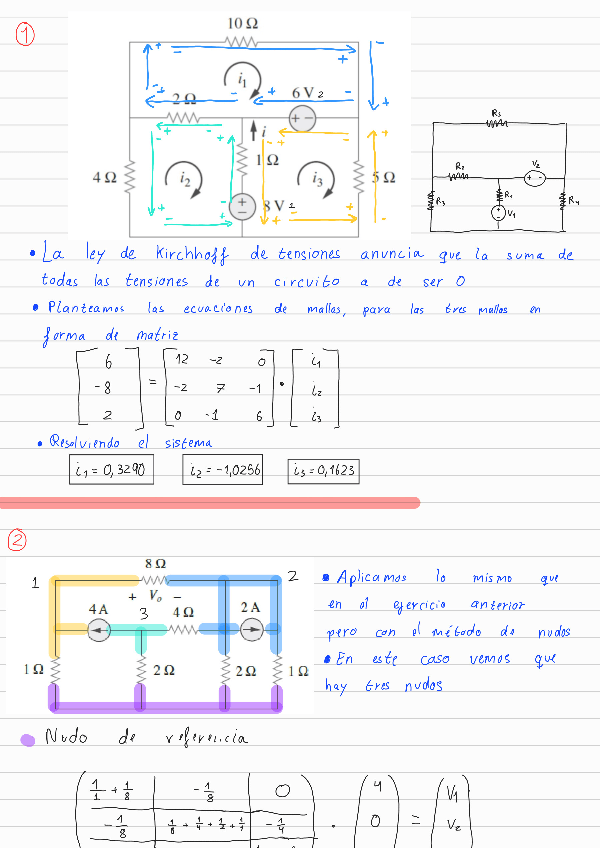 1
10 Ω
i1
2 Ω
6 V 2
i
4 Ω
i2
1 Ω
i3
5 Ω
8 V 1
R3
R2
V2
R3
R1
V1
R4
• La ley de Kirchhoff de tensiones anuncia que la suma de
todas las tensiones de un circuito a de ser 0
• Planteamos las ecuaciones de mallas, para las tres mallas en
forma de matriz
6 12 -2 0 i1
-8 = -2 7 -1 • i2
2 0 -1 6 i3
• Resolviendo el sistema
i1 = 0,3290 i2 = -1,0256 i3 = 0,1623
2
8 Ω
1 + Vo - 2
4 A 3 4 Ω 2 A
1 Ω 2 Ω 2 Ω 1 Ω
• Aplicamos lo mismo que
en el ejercicio anterior
pero con el método de nudos
• En este caso vemos que
hay tres nudos
Nudo de referencia
1/1 + 1/8 -1/8 0 4 V1
-1/8 1/8 + 1/4 + 1/2 + 1/1 -1/4 . 0 = V2